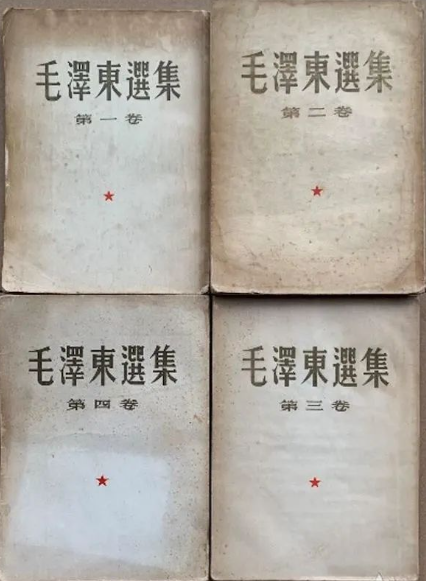 毛澤東選集
第一卷
毛澤東選集
第二卷
毛澤東選集
第四卷
毛澤東選集
第三卷